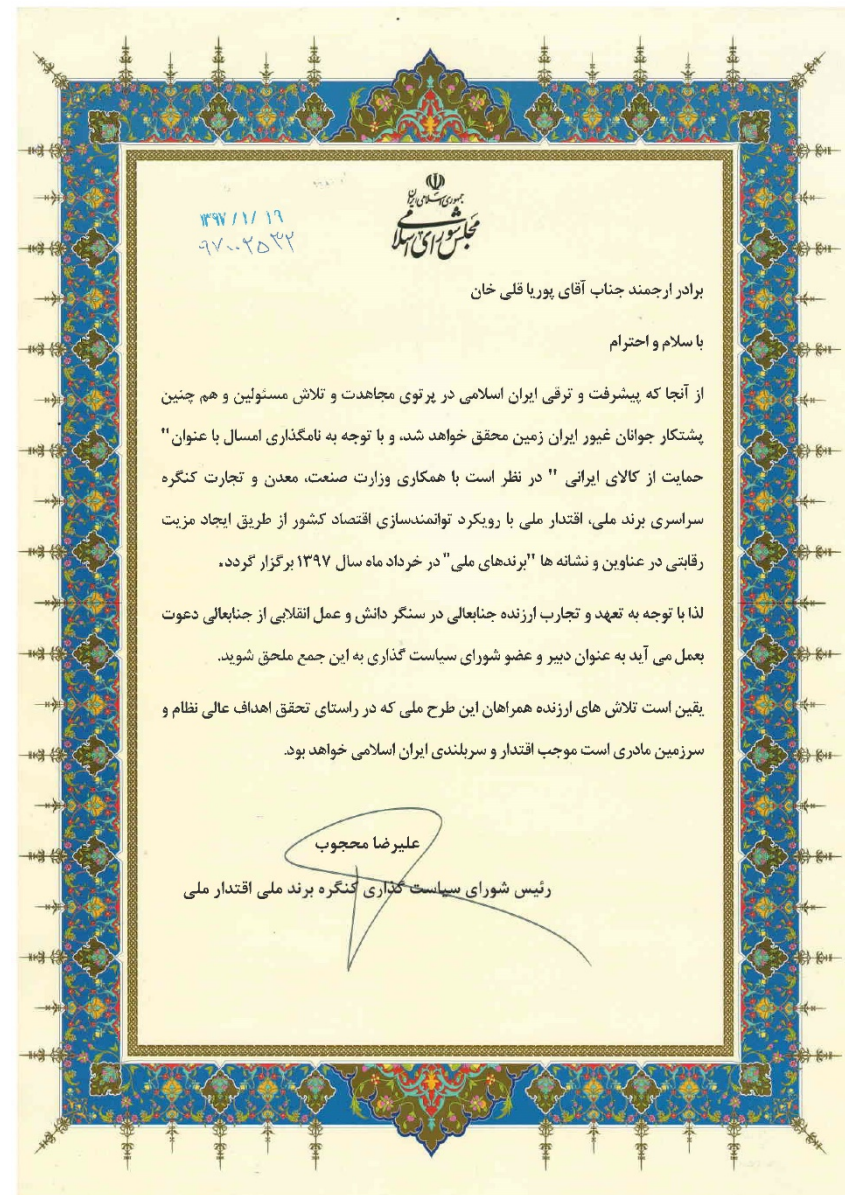 جمهوری اسلامی ایران
مجلس شورای اسلامی
۱۳۹۷/۱/۱۹
۹۷۰۰۲۵۳۲
برادر ارجمند جناب آقای پوریا قلی خان
با سلام و احترام
از آنجا که پیشرفت و ترقی ایران اسلامی در پرتوی مجاهدت و تلاش مسئولین و هم چنین
پشتکار جوانان غیور ایران زمین محقق خواهد شد، و با توجه به نامگذاری امسال با عنوان "
حمایت از کالای ایرانی " در نظر است با همکاری وزارت صنعت، معدن و تجارت کنگره
سراسری برند ملی، اقتدار ملی با رویکرد توانمندسازی اقتصاد کشور از طریق ایجاد مزیت
رقابتی در عناوین و نشانه ها "برندهای ملی" در خرداد ماه سال ۱۳۹۷ برگزار گردد.
لذا با توجه به تعهد و تجارب ارزنده جنابعالی در سنگر دانش و عمل انقلابی از جنابعالی دعوت
بعمل می آید به عنوان دبیر و عضو شورای سیاست گذاری به این جمع ملحق شوید.
یقین است تلاش های ارزنده همراهان این طرح ملی که در راستای تحقق اهداف عالی نظام و
سرزمین مادری است موجب اقتدار و سربلندی ایران اسلامی خواهد بود.
علیرضا محجوب
رئیس شورای سیاست گذاری کنگره برند ملی اقتدار ملی